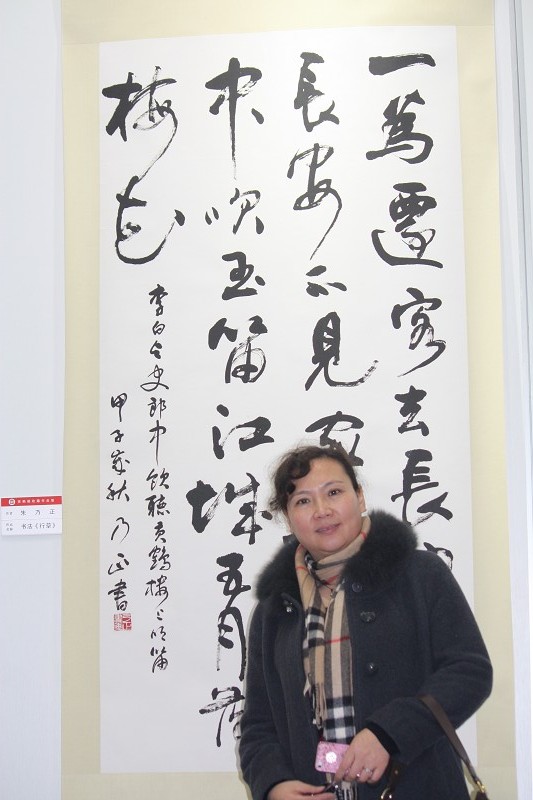 一為遷客去長
長安不見家
中吹玉笛江城五月落
梅花
李白与史郎中飲聽黃鶴樓上吹笛
甲子歲秋乃正書
朱乃正
书法《行草》